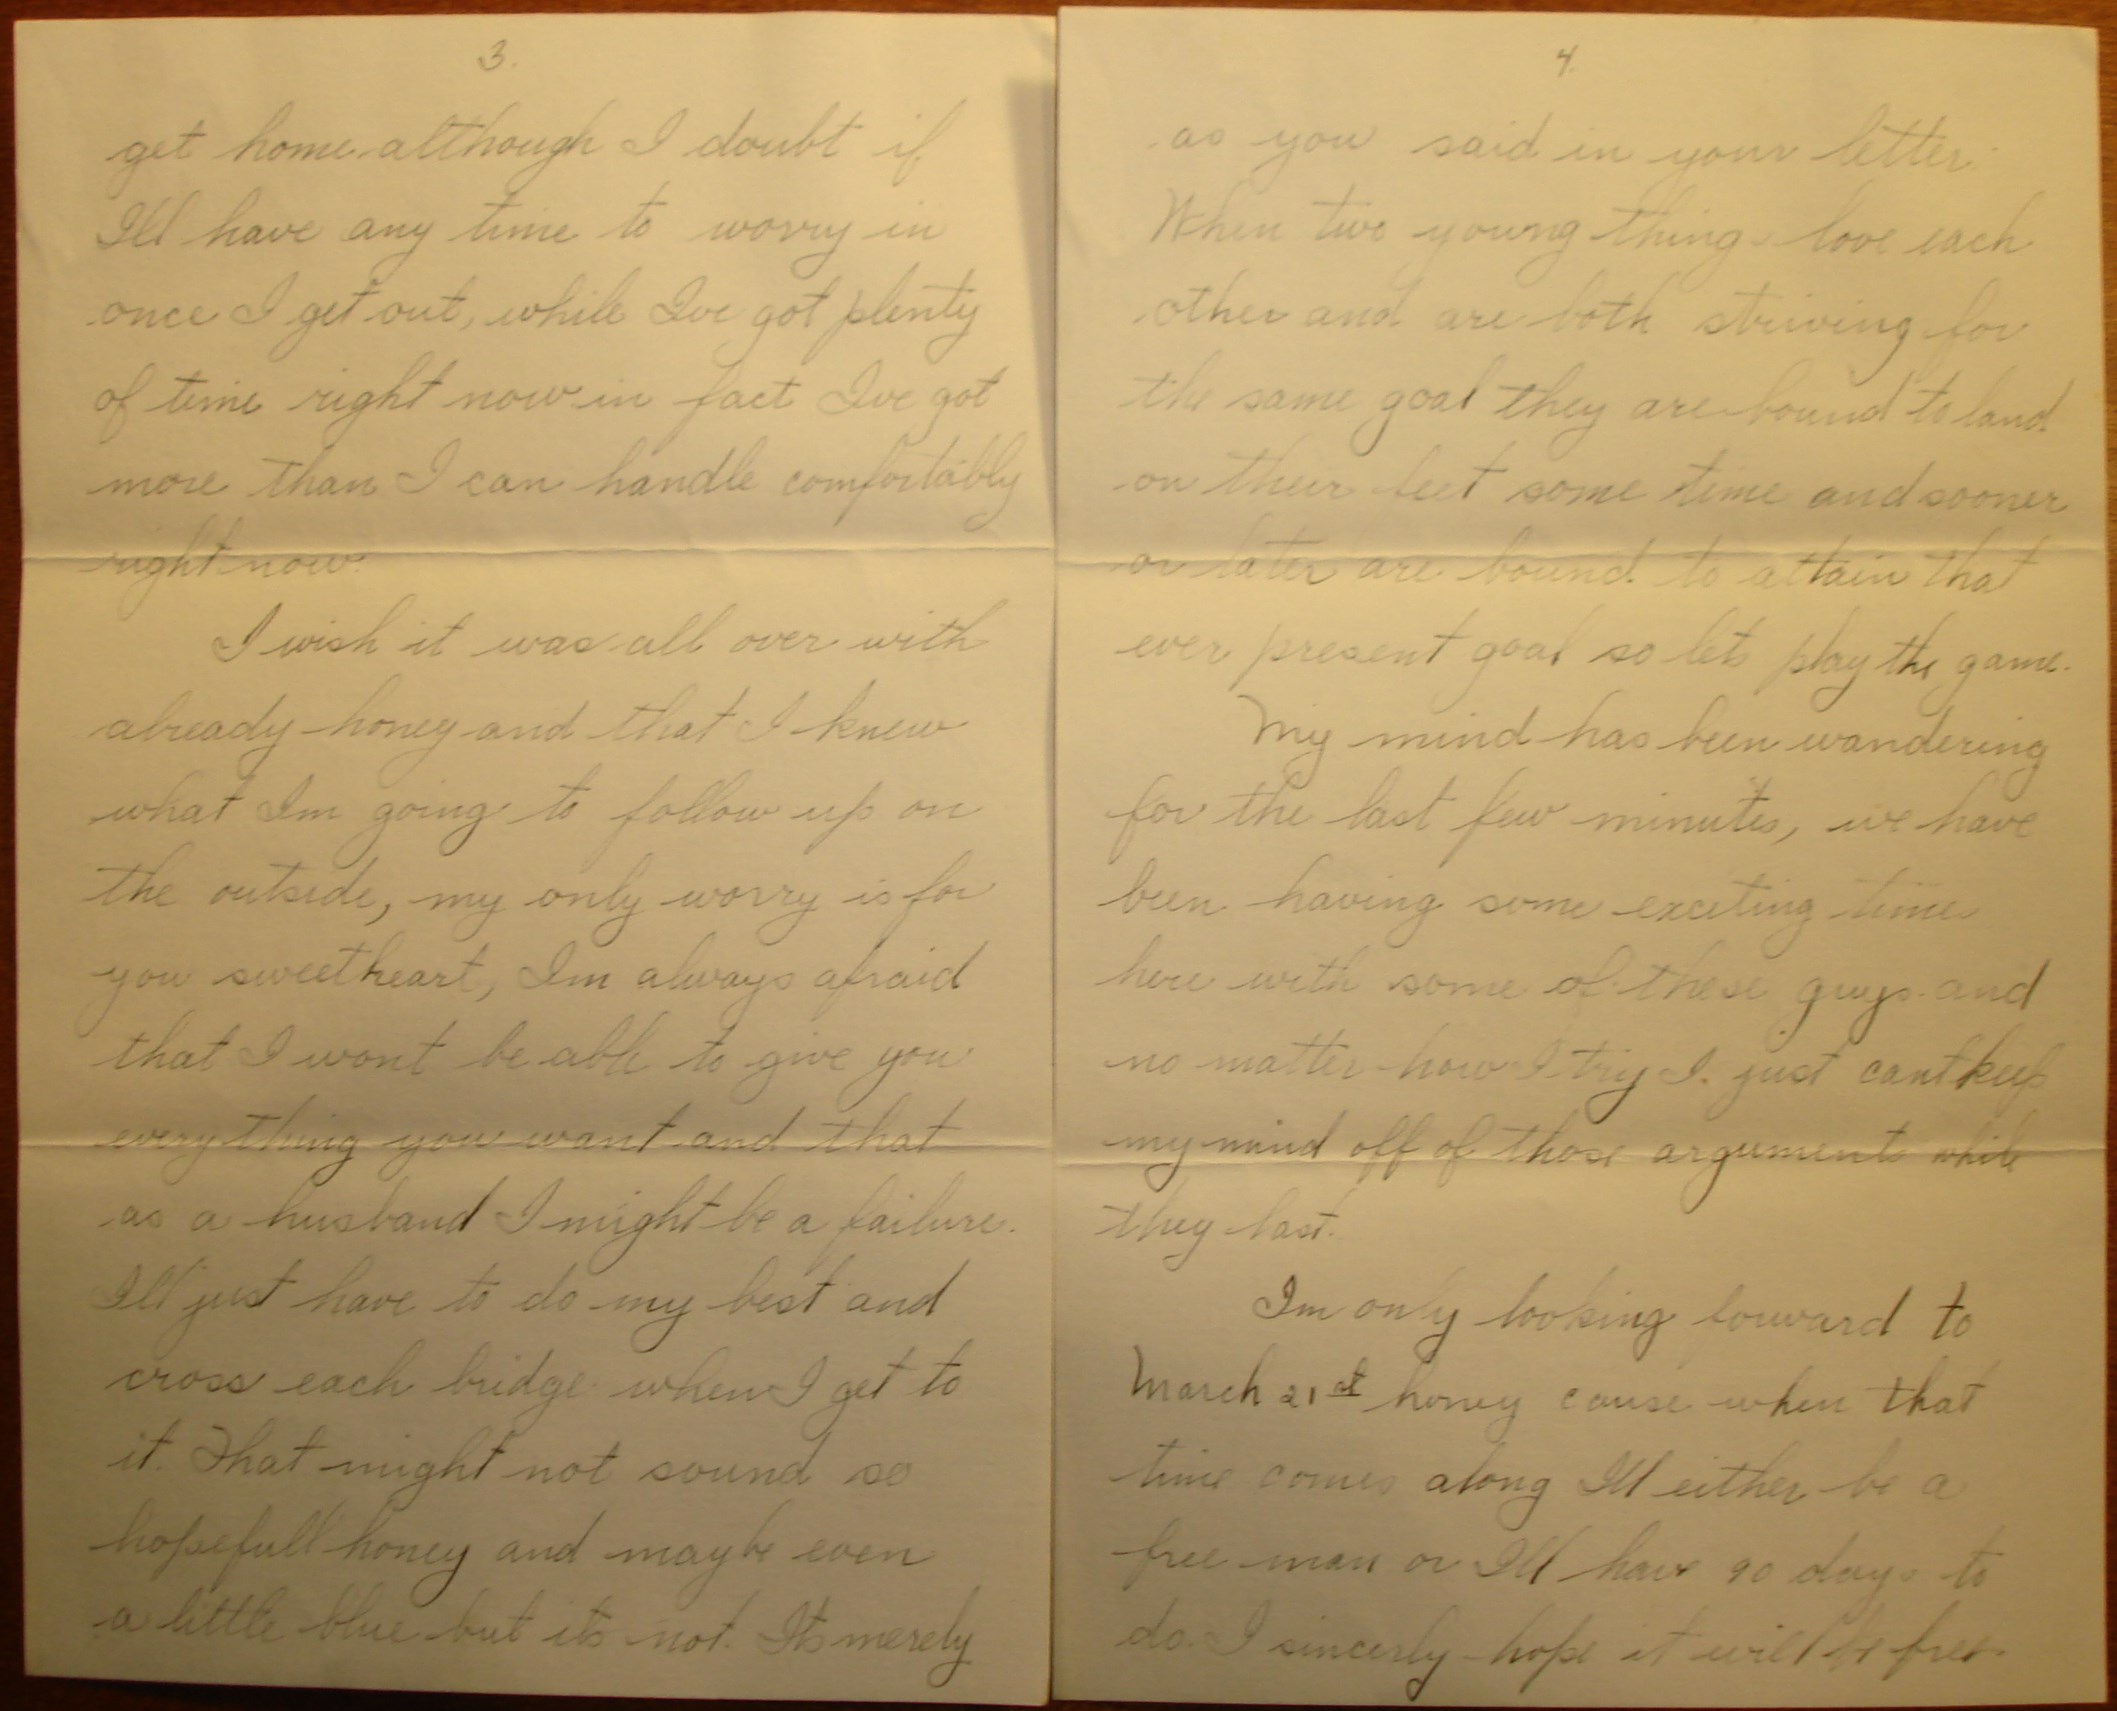 3.
get home although I doubt if
I'll have any time to worry in
once I get out, while Ive got plenty
of time right now in fact Ive got
more than I can handle comfortably
right now.
I wish it was all over with
already honey and that I knew
what Im going to follow up on
the outside, my only worry is for
you sweetheart, Im always afraid
that I wont be able to give you
everything you want and that
as a husband I might be a failure.
Ill just have to do my best and
cross each bridge when I get to
it. That might not sound so
hopefull honey and maybe even
a little blue but its not. Its merely
4.
as you said in your letter.
When two young things love each
other and are both striving for
the same goal they are bound to land
on their feet some time and sooner
or later are bound to attain that
ever present goal so lets play the game.
My mind has been wandering
for the last few minutes, we have
been having some exciting time
here with some of these guys and
no matter how I try I just cant keep
my mind off of those arguments while
they last.
Im only looking forward to
March 21st honey cause when that
time comes along Ill either be a
free man or Ill have 90 days to
do. I sincerly hope it will be free.